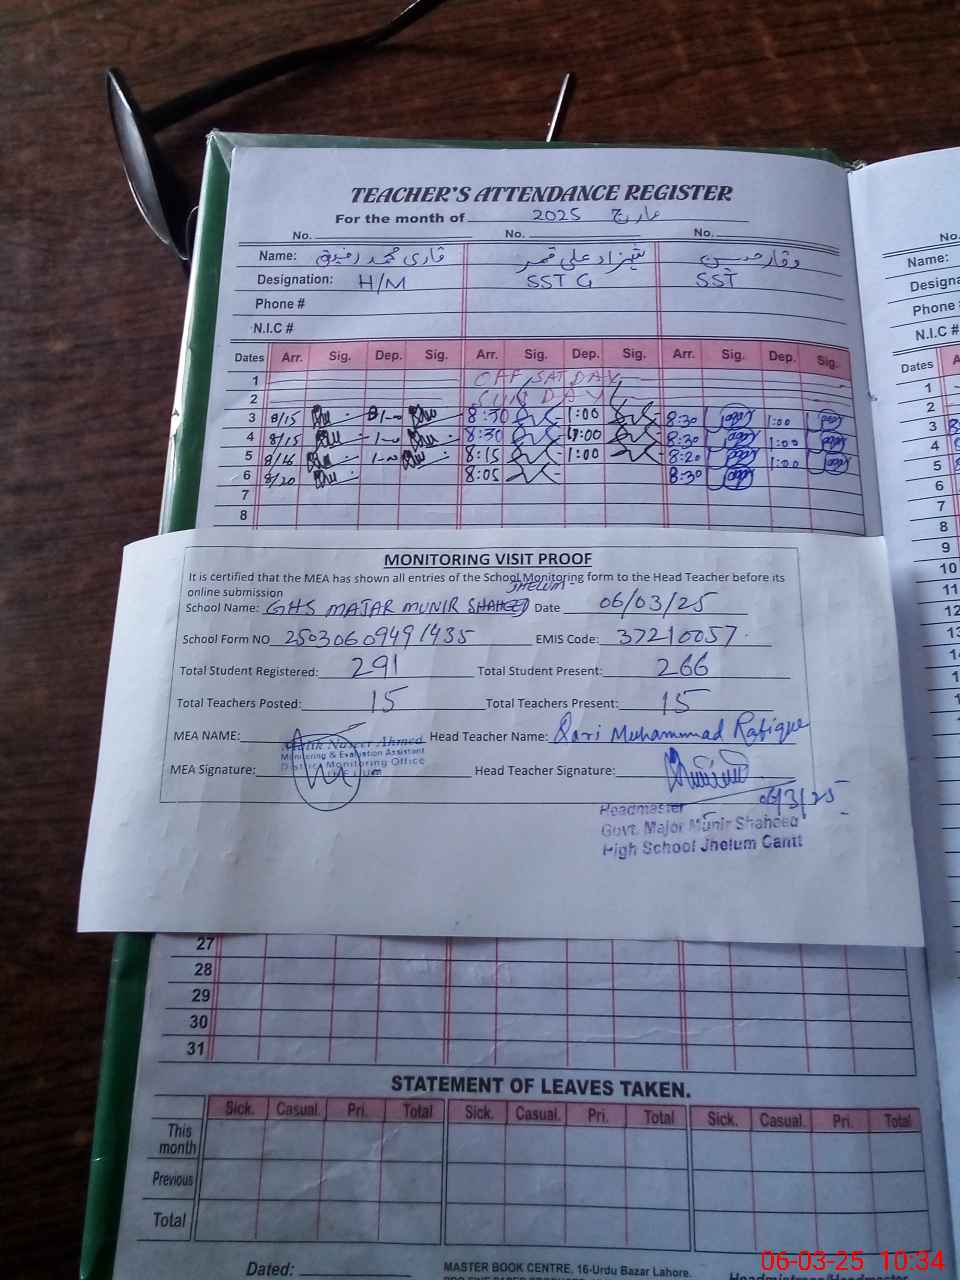 TEACHER'S ATTENDANCE REGISTER
For the month of 2025 مارچ
No. No. No.
Name: قاری محمد رفیق شہزاد علی قمر وقار حسین
Designation: H/M SST G SST
Phone #
N.I.C #
Dates Arr. Sig. Dep. Sig. Arr. Sig. Dep. Sig. Arr. Sig. Dep. Sig.
1 OFF SATDAY
2 SUNDAY
3 8/15 8:30 1:00 8:30 1:00
4 8/15 8:30 1:00 8:30 1:00
5 8/16 8:15 1:00 8:20 1:00
6 8/20 8:05 8:30
7
8
MONITORING VISIT PROOF
It is certified that the MEA has shown all entries of the School Monitoring form to the Head Teacher before its
online submission
JHELUM
School Name: GHS MAJAR MUNIR SHAHEED Date 06/03/25
School Form NO 25030609491435 EMIS Code: 37210057
Total Student Registered: 291 Total Student Present: 266
Total Teachers Posted: 15 Total Teachers Present: 15
MEA NAME: Malik Naseer Ahmed Head Teacher Name: Qari Muhammad Rafique
Monitoring & Evaluation Assistant
District Monitoring Office
JHELUM
MEA Signature: Head Teacher Signature:
06/3/25
Headmaster
Govt. Major Munir Shaheed
High School Jhelum Cantt
27
28
29
30
31
STATEMENT OF LEAVES TAKEN.
Sick. Casual. Pri. Total Sick. Casual. Pri. Total Sick. Casual. Pri. Total
This
month
Previous
Total
Dated:
MASTER BOOK CENTRE, 16-Urdu Bazar Lahore.
No.
Name:
Phone
N.I.C #
Dates
1
2
3
4
5
6
7
8
9
10
11
12
13
06-03-25 10:34